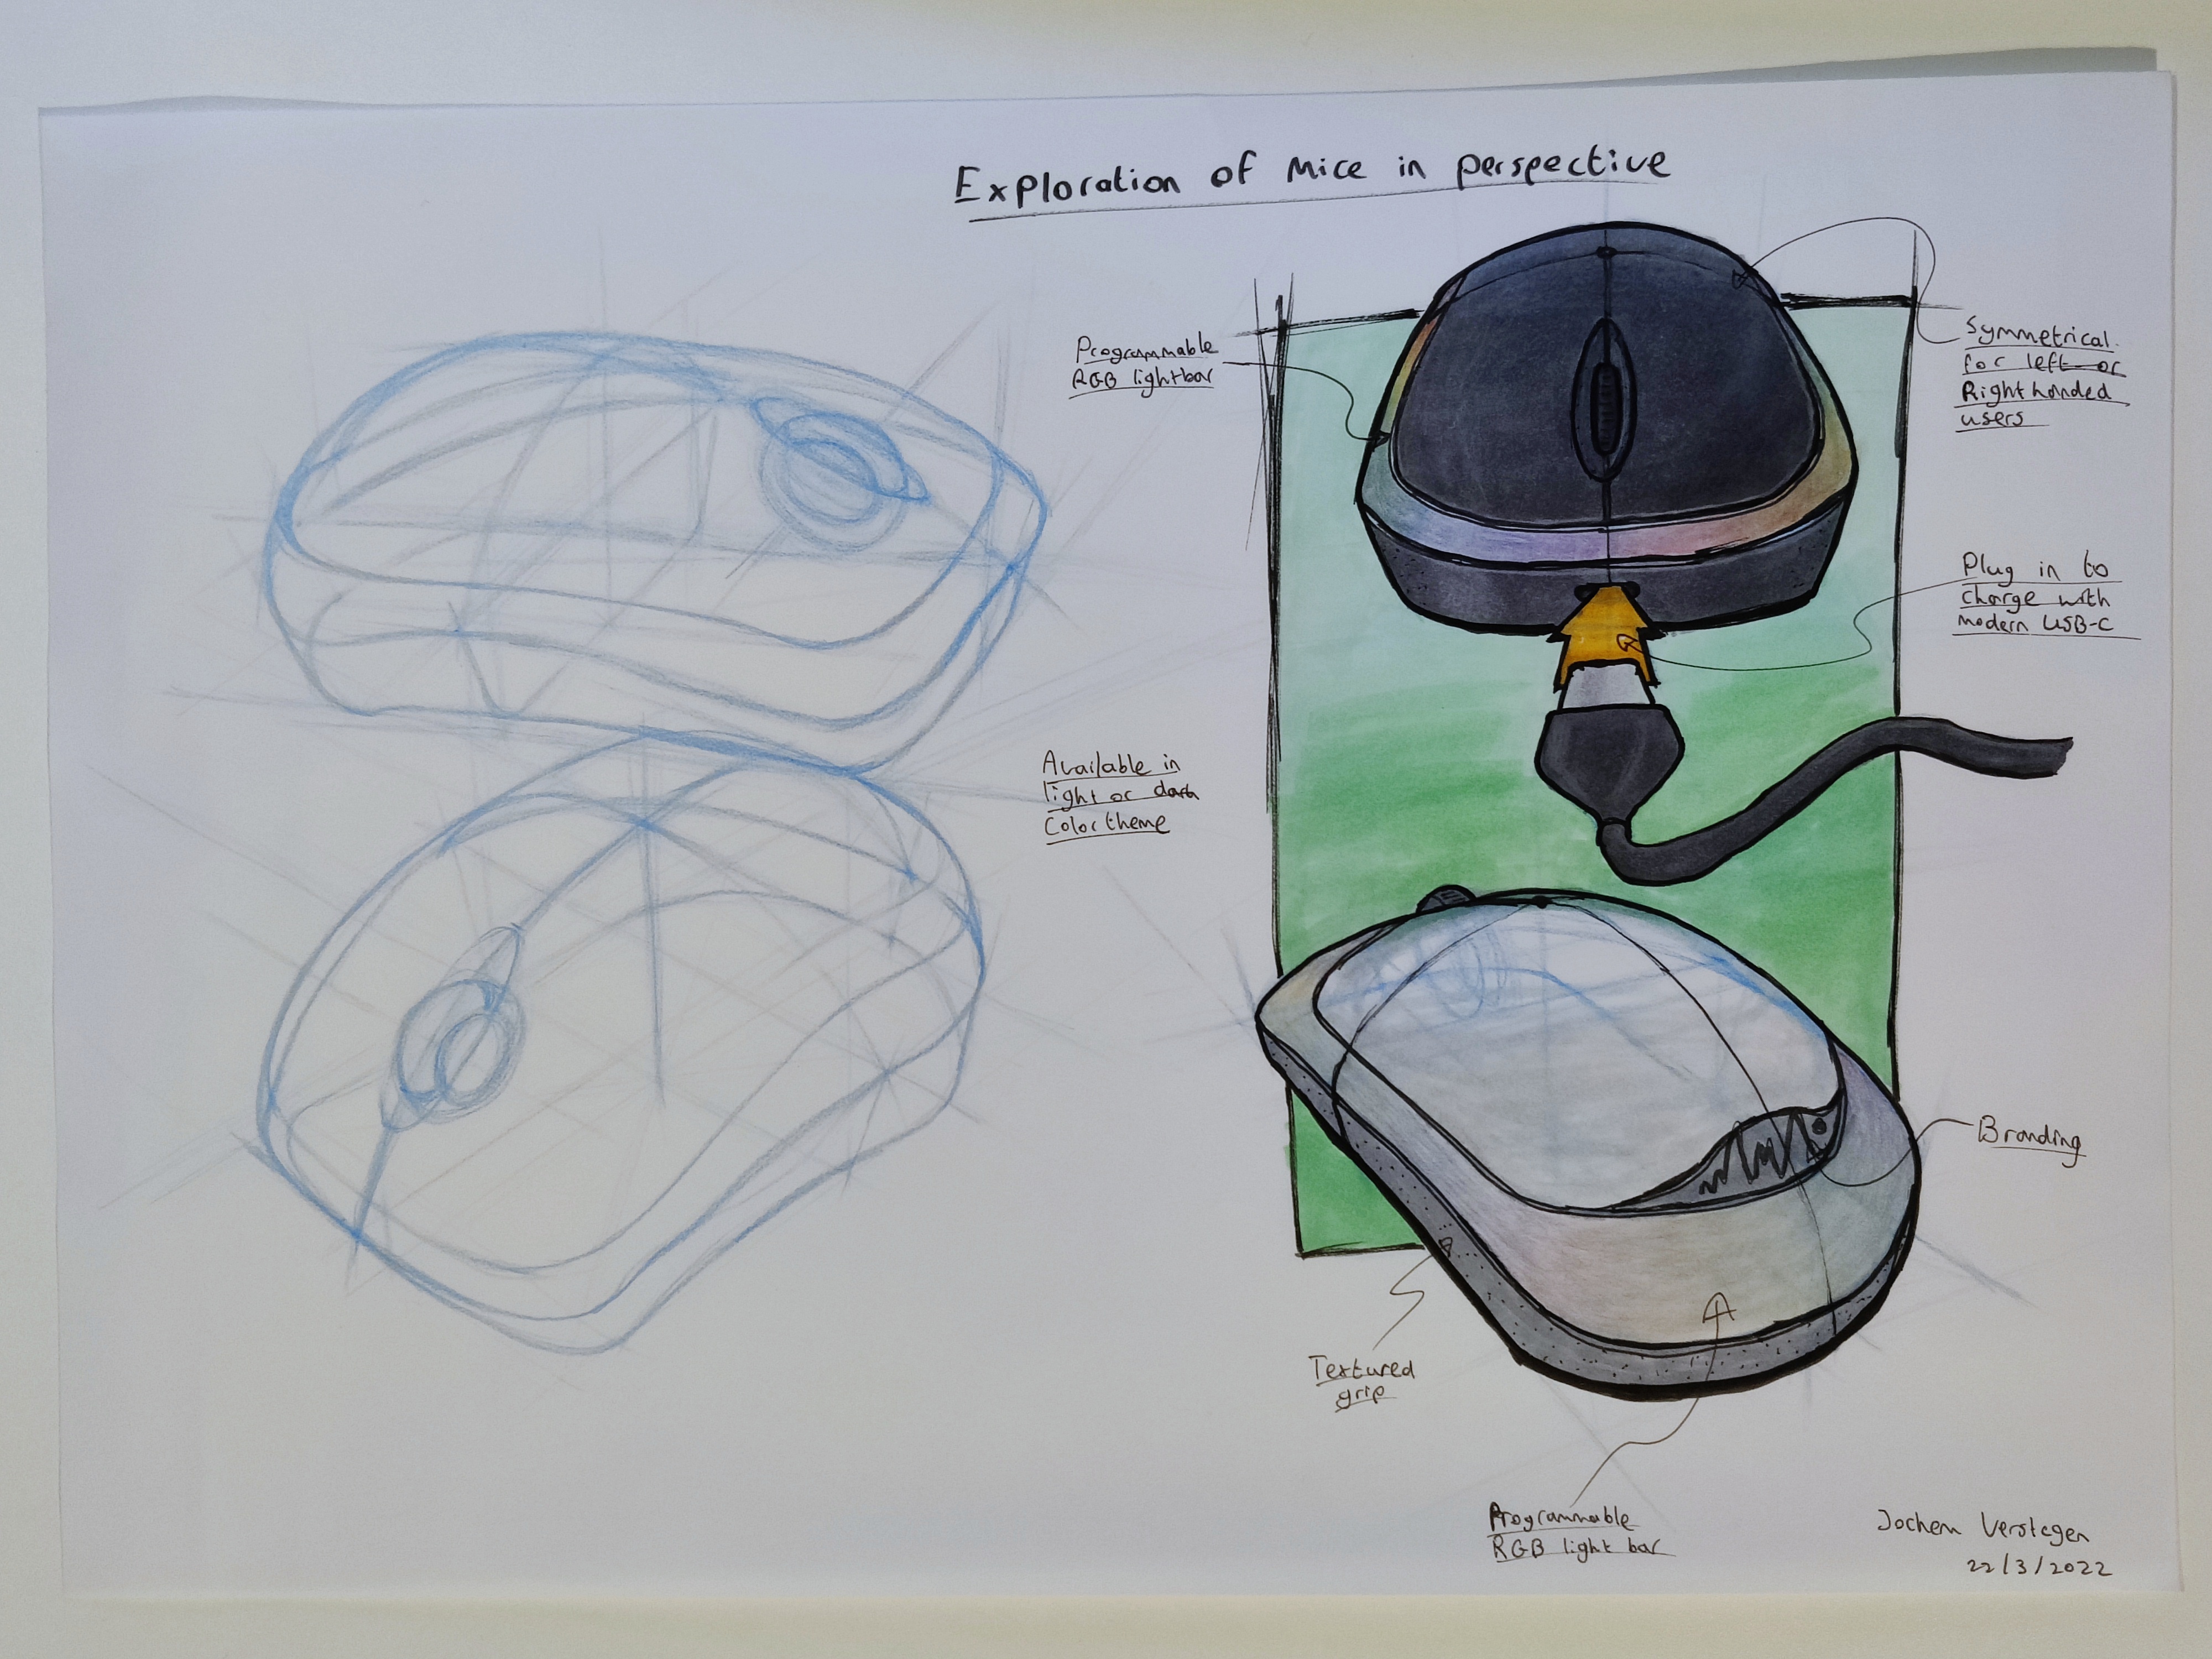 Exploration of mice in perspective
Programmable
RGB lightbar
Symmetrical
for left or
Right handed
users
Plug in to
charge with
modern USB-C
Available in
light or dark
Color theme
Branding
Textured
grip
Programmable
RGB light bar
Jochem Verstegen
22/3/2022